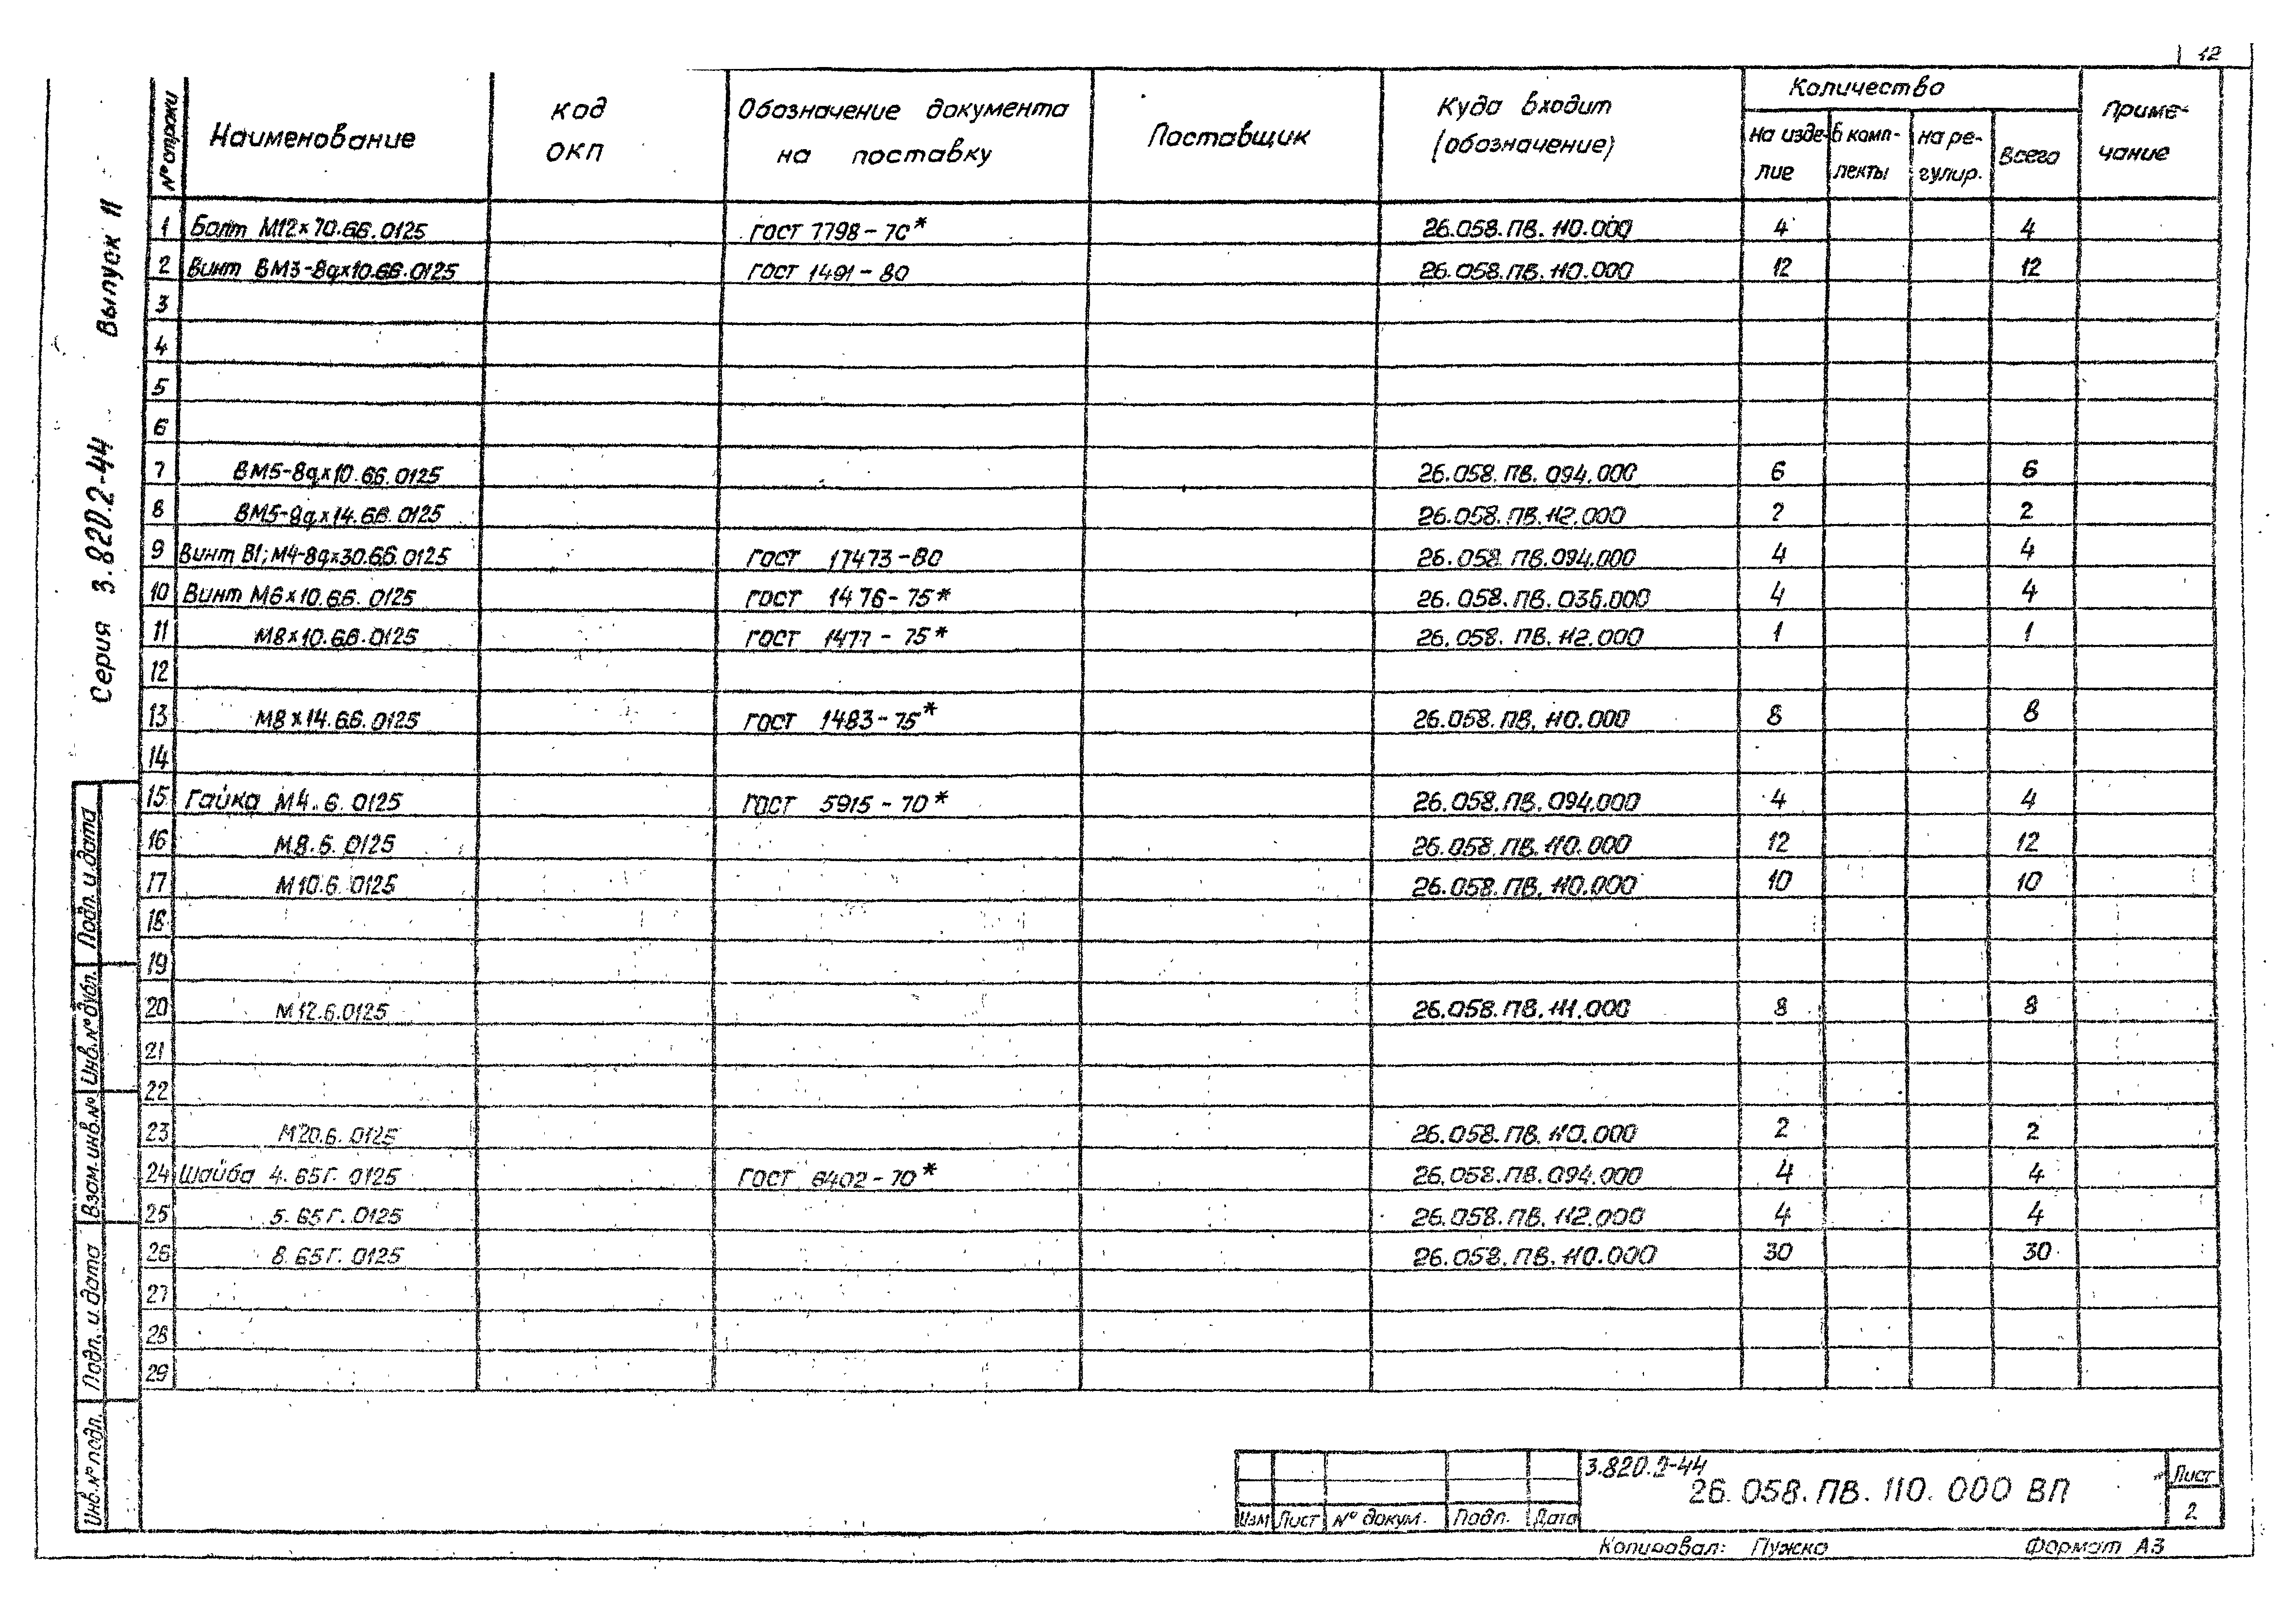 12
№ строки Наименование код ОКП Обозначение документа на поставку Поставщик Куда входит (обозначение) Количество на изделие в комплекты на регулир. Всего Примечание
1 Болт М12х70.66.0125 ГОСТ 7798-70* 26.058.ПВ.110.000 4 4
2 Винт ВМ3-8gх10.66.0125 ГОСТ 1491-80 26.058.ПВ.110.000 12 12
3
4
5
6
7 ВМ5-8gх10.66.0125 26.058.ПВ.094.000 6 6
8 ВМ5-8gх14.66.0125 26.058.ПВ.112.000 2 2
9 Винт В1;М4-8gх30.66.0125 ГОСТ 17473-80 26.058.ПВ.094.000 4 4
10 Винт М6х10.66.0125 ГОСТ 1476-75* 26.058.ПВ.036.000 4 4
11 М8х10.66.0125 ГОСТ 1477-75* 26.058.ПВ.112.000 1 1
12
13 М8х14.66.0125 ГОСТ 1483-75* 26.058.ПВ.110.000 8 8
14
15 Гайка М4.6.0125 ГОСТ 5915-70* 26.058.ПВ.094.000 4 4
16 М8.6.0125 26.058.ПВ.110.000 12 12
17 М10.6.0125 26.058.ПВ.110.000 10 10
18
19
20 М12.6.0125 26.058.ПВ.111.000 8 8
21
22
23 М20.6.0125 26.058.ПВ.110.000 2 2
24 Шайба 4.65Г.0125 ГОСТ 6402-70* 26.058.ПВ.094.000 4 4
25 5.65Г.0125 26.058.ПВ.112.000 4 4
26 8.65Г.0125 26.058.ПВ.110.000 30 30
27
28
29
Серия 3.820.2-44 Выпуск 11
Инв.№ подл. Подп. и дата Взам.инв.№ Инв.№ дубл. Подп. и дата
3.820.2-44
26.058.ПВ.110.000 ВП
Лист
2
Изм Лист № докум. Подп. Дата
Копировал: Пужко Формат А3